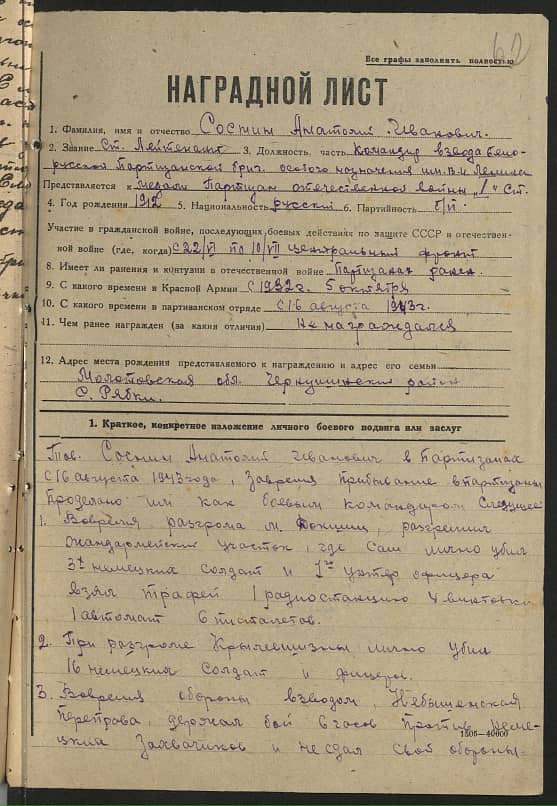 62
Все графы заполнять полностью
НАГРАДНОЙ ЛИСТ
1. Фамилия, имя и отчество Соснин Анатолий Иванович.
2. Звание Ст. Лейтенант 3. Должность, часть Командир взвода Бело-
русской Партизанской бриг. особого назначения им. В.И Ленина
Представляется к медали Партизан отечественной войны „1“ Ст.
4. Год рождения 1912 5. Национальность русский 6. Партийность б/п
Участие в гражданской войне, последующих боевых действиях по защите СССР и отечествен-
ной войне (где, когда) с 22/VI по 10/VII Центральный фронт
8. Имеет ли ранения и контузии в отечественной войне Партизанах ранен.
9. С какого времени в Красной Армии С 1932 г. 5 октября
10. С какого времени в партизанском отряде с 16 августа 1943г.
11. Чем ранее награжден (за какия отличия) Не награждался
12. Адрес места рождения представляемого к награждению и адрес его семьи
Молотовская обл. Чернушинский район
с. Рябки.
1. Краткое, конкретное изложение личного боевого подвига или заслуг
Тов. Соснин Анатолий Иванович в Партизанах
с 16 августа 1943 года, Завремя прибывание в партизаны
Проделано им как боевым командиром следущее
1. Вовремя разгрома м. Докшиц, разгромил
жандармейский участок, где Сам лично убил
3х немецких солдат и 1го унтер офицера
взял трафей 1 радиостанцию 4 винтовки
1 автомат 6 писталетов.
2. При разгроме Крулевщизны лично убил
16 немецких Солдат и фицеры.
3. Вовремя обороны взводом, Небышенская
Переправа, держал бой 6 часов против неме-
цких Захвачиков и не сдал свой обороны.
1505—40000